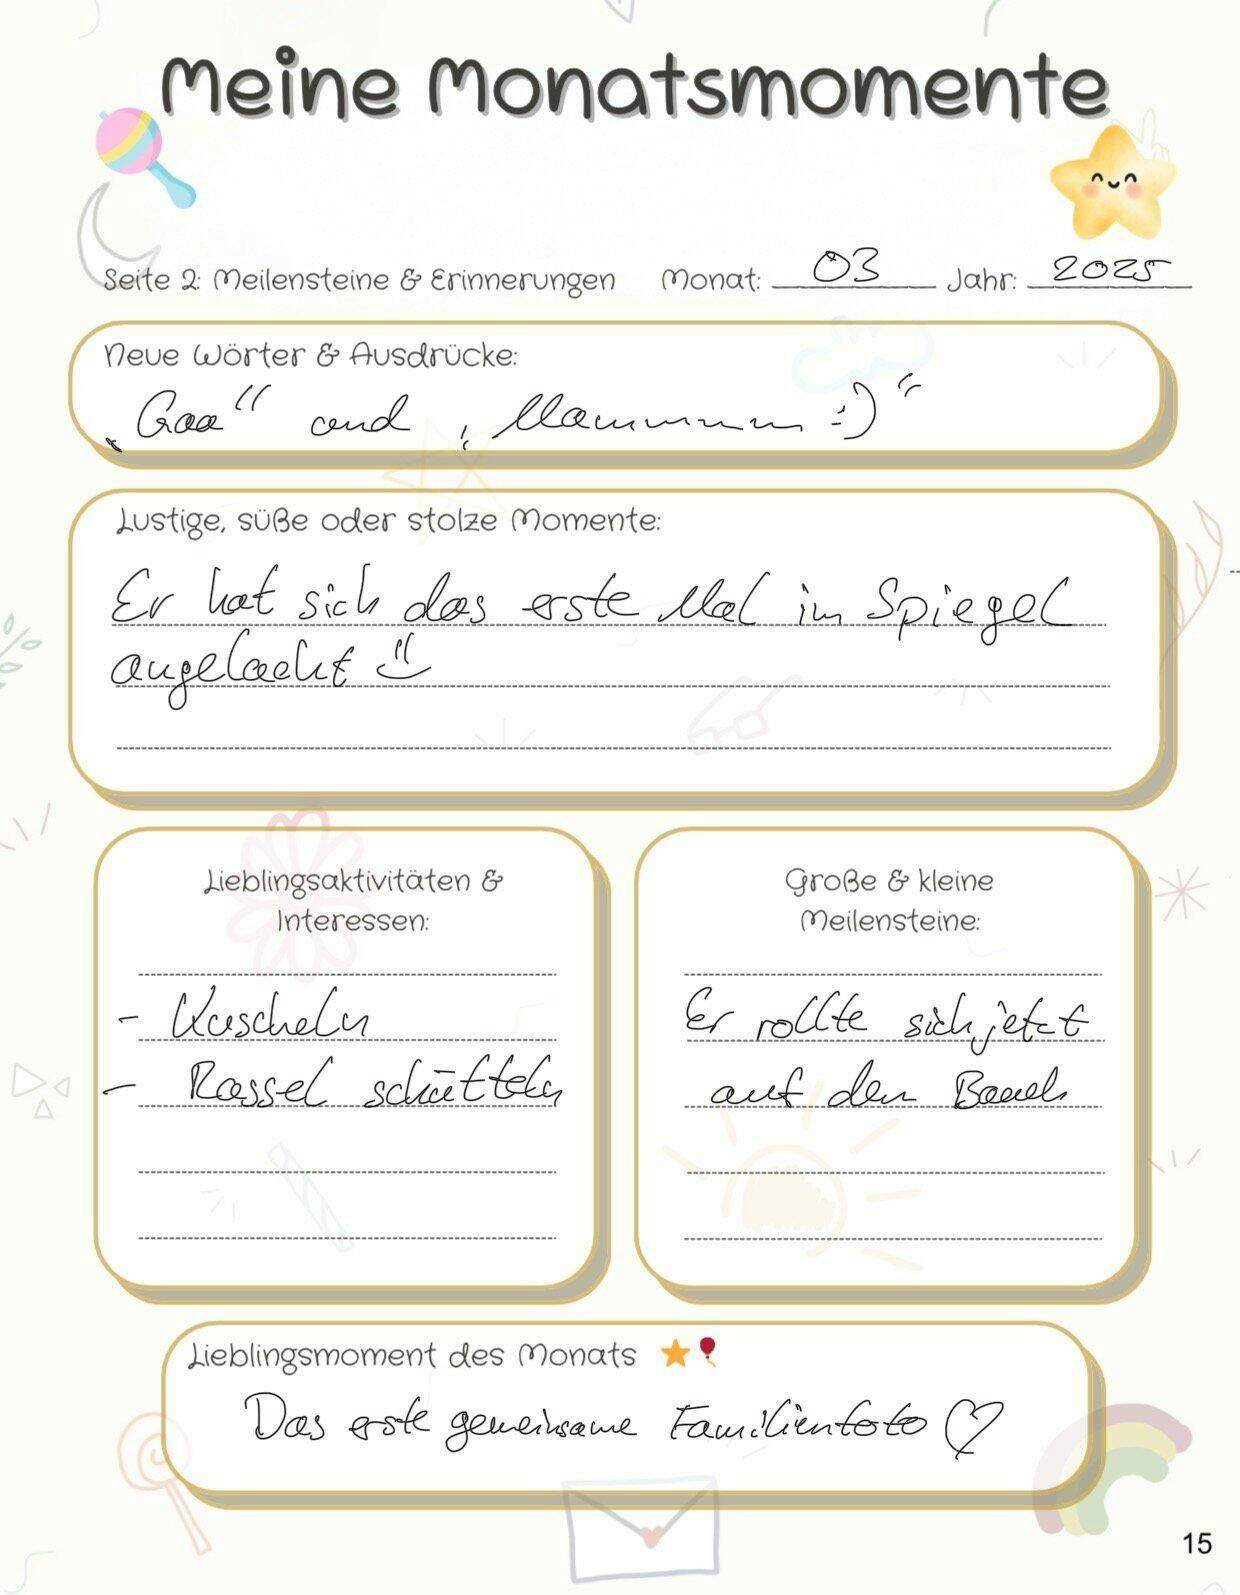 Meine Monatsmomente
Seite 2: Meilensteine & Erinnerungen Monat: 03 Jahr: 2025
Neue Wörter & Ausdrücke:
„Gaa" und „Mammmm :)"
Lustige, süße oder stolze Momente:
Er hat sich das erste Mal im Spiegel
angelacht
Lieblingsaktivitäten &
Interessen:
- Kuscheln
- Rassel schütteln
Große & kleine
Meilensteine:
Er rollte sich jetzt
auf den Bauch
Lieblingsmoment des Monats
Das erste gemeinsame Familienfoto
15